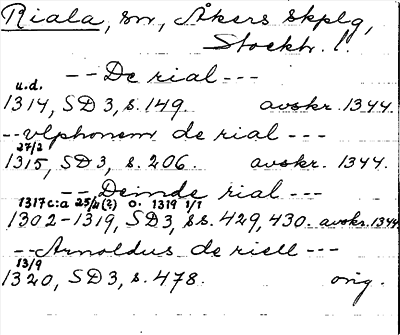 Riala, sn, Åkers skplg,
Stockh. l.
-- De rial ---
u.d.
1314, SD 3, s. 149. avskr. 1344.
-- vlphonem de rial ---
27/2
1315, SD 3, s. 206. avskr. 1344.
-- Deinde rial ---
1317 c:a 25/2(?) o. 1319 1/1
1302-1319, SD 3, ss. 429, 430. avskr. 1344
-- Arnoldus de riell ---
13/9
1320, SD 3, s. 478. orig.